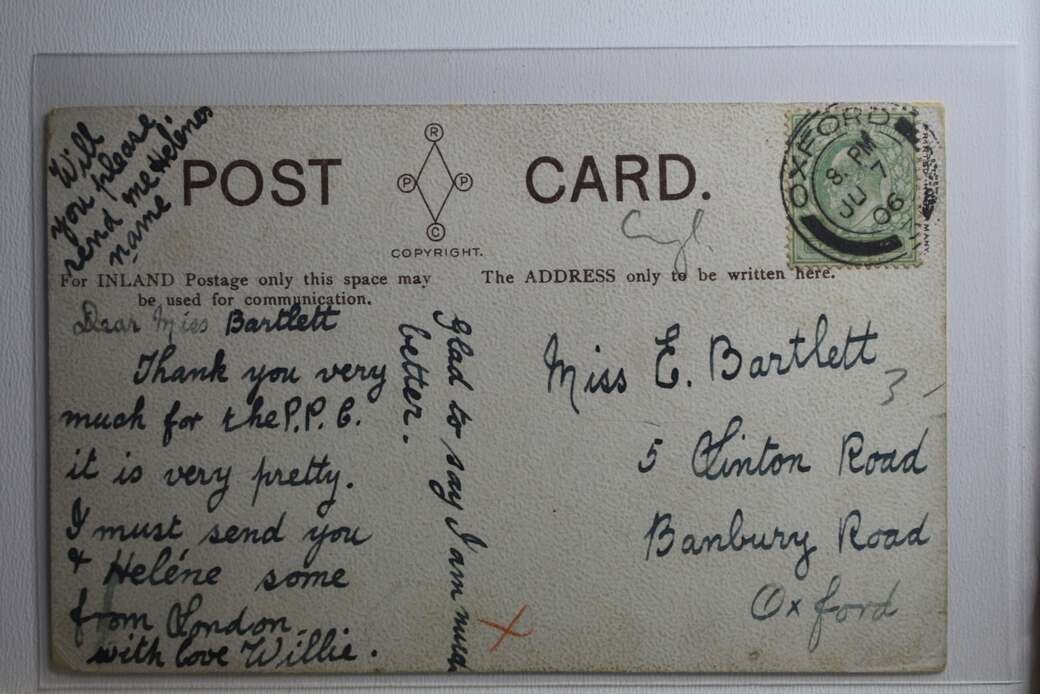 Will
you please
send me Heléne's
name
POST CARD.
R
P P
C
COPYRIGHT.
OXFORD
8. PM
JU 7
06
For INLAND Postage only this space may
be used for communication.
The ADDRESS only to be written here.
Dear Miss Bartlett
Thank you very
much for the P.P.C.
it is very pretty.
I must send you
& Heléne some
from London
with love Willie.
Glad to say I am much
better.
Miss E. Bartlett
3
5 Linton Road
Banbury Road
Oxford